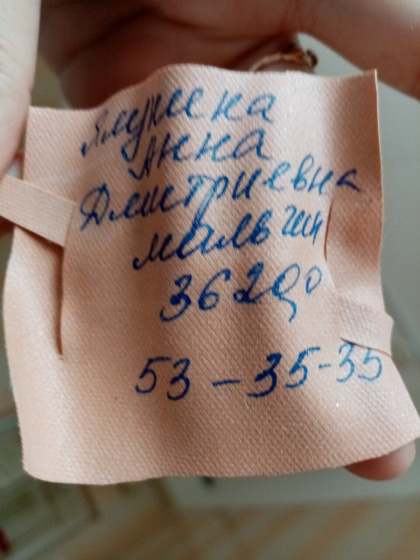 Ямушена
Анна
Дмитриевна
мальчик
3620,0
53 - 35-35